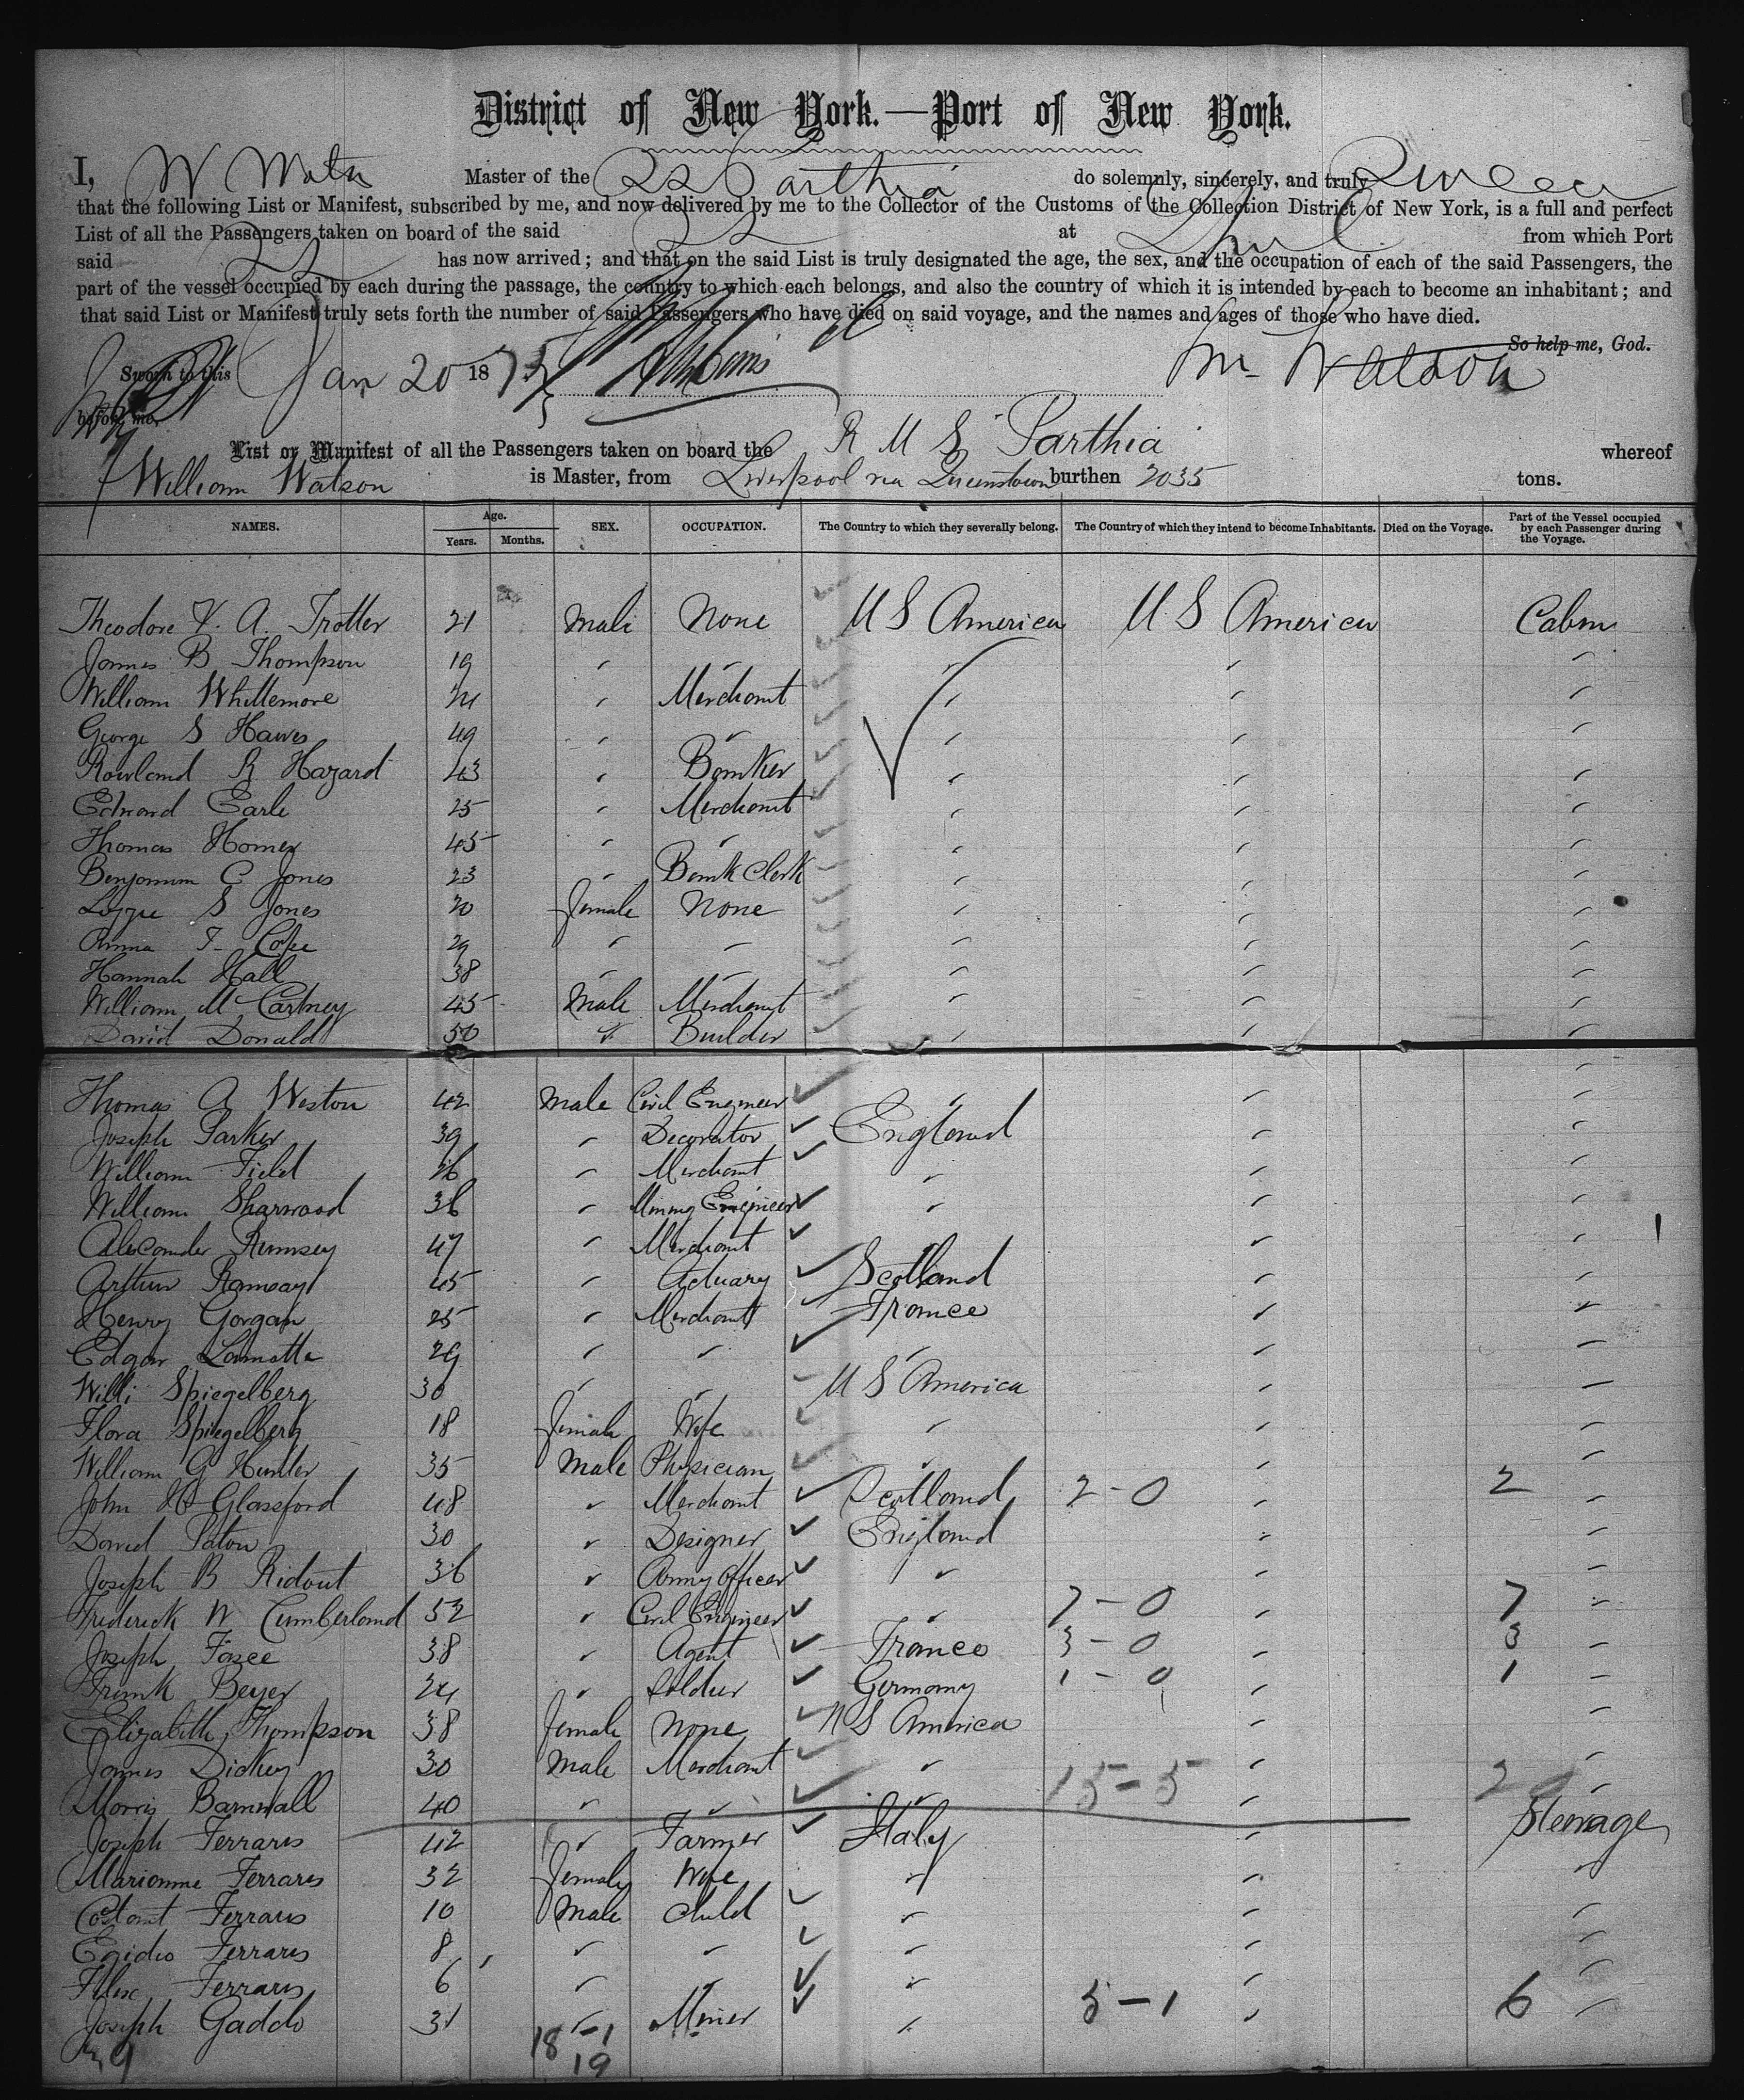 District of New York.—Port of New York.
I, W Watson Master of the SS Parthia do solemnly, sincerely, and truly Swear
that the following List or Manifest, subscribed by me, and now delivered by me to the Collector of the Customs of the Collection District of New York, is a full and perfect
List of all the Passengers taken on board of the said at from which Port
said has now arrived; and that on the said List is truly designated the age, the sex, and the occupation of each of the said Passengers, the
part of the vessel occupied by each during the passage, the country to which each belongs, and also the country of which it is intended by each to become an inhabitant; and
that said List or Manifest truly sets forth the number of said Passengers who have died on said voyage, and the names and ages of those who have died.
So help me, God.
Sworn to this Jan 20 1875 Wm Watson
before me,
List or Manifest of all the Passengers taken on board the R M S Parthia whereof
William Watson is Master, from Liverpool via Queenstown burthen 2035 tons.
NAMES. Age. Years. Months. SEX. OCCUPATION. The Country to which they severally belong. The Country of which they intend to become Inhabitants. Died on the Voyage. Part of the Vessel occupied by each Passenger during the Voyage.
Theodore A. Trotter 21 Male None U S America U S America Cabin
James B Thompson 19 " " " " "
William Whittemore " Merchant " " "
George S Hawes 49 " " " " "
Rowland R Hazard 43 " Banker " " "
Edward Earle 25 " Merchant " " "
Thomas Homer 45 " " " " "
Benjamin C Jones 23 " Bank Clerk " " "
Lizzie S Jones 20 female None " " "
Anna T. 29 " " " " "
Hannah Hall 38 " " " " "
William McCartney 45 Male Merchant " " "
David Donald 50 " Builder " " "
Thomas A Weston 42 Male Civil Engineer " " "
Joseph Parker 39 " Decorator England " "
William Field 26 " Merchant " " "
William Sharwood 36 " Mining Engineer " " "
Alexander Rumsey 47 " Merchant " " "
Arthur Ramsay 45 " Actuary Scotland " "
Henry Gorgan 25 " Merchant France " "
Edgar Lamotte 29 " " " " "
Willi Spiegelberg 30 " " U S America " "
Flora Spiegelberg 18 female Wife " " "
William G Hunter 35 Male Physician " " "
John H Glassford 48 " Merchant Scotland 2-0 " 2 "
David Paton 30 " Designer England " "
Joseph B Ridout 36 " Army Officer " " "
Frederick W Cumberland 52 " Civil Engineer " 7-0 " 7 "
Joseph 38 " Agent France 3-0 " 3 "
Frank Beyer 24 " Soldier Germany 1-0 " 1 "
Elizabeth Thompson 38 female None U S America " "
James Dickey 30 Male Merchant " 15-5 " "
Morris Barnwall 40 " " " " "
Joseph Ferraris 42 " Farmer Italy " Steerage
Marianne Ferraris 32 female Wife " " "
Costant Ferraris 10 Male Child " " "
Egidio Ferraris 8 " " " " "
Ferraris 6 " " " " "
Joseph Gaddo 31 " Miner " 5-1 " 6 "
18-1
19